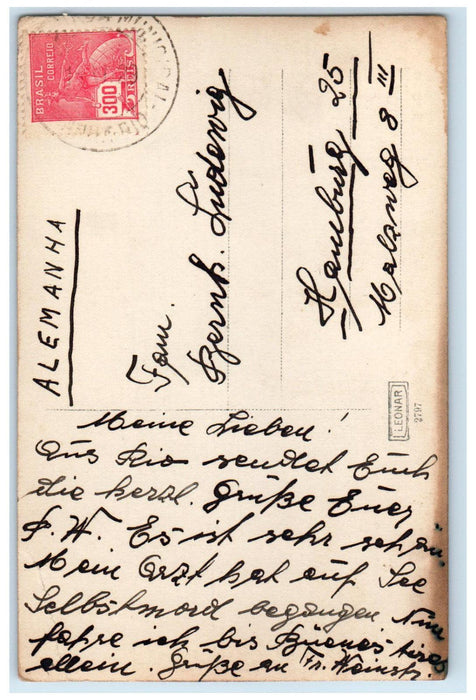 BRASIL CORREIO
300 REIS
ALEMANHA
Fam.
Bernh. Ludewig
Hamburg 25
Malzweg 8 III
LEONAR
2797
Meine Lieben!
Aus Rio sendet Euch
die herzl. Grüße Euer
F. W. Es ist sehr schön.
Mein Arzt hat auf See
Selbstmord begangen. Nun
fahre ich bis Buenos-Aires
allein. Grüße an Fr.